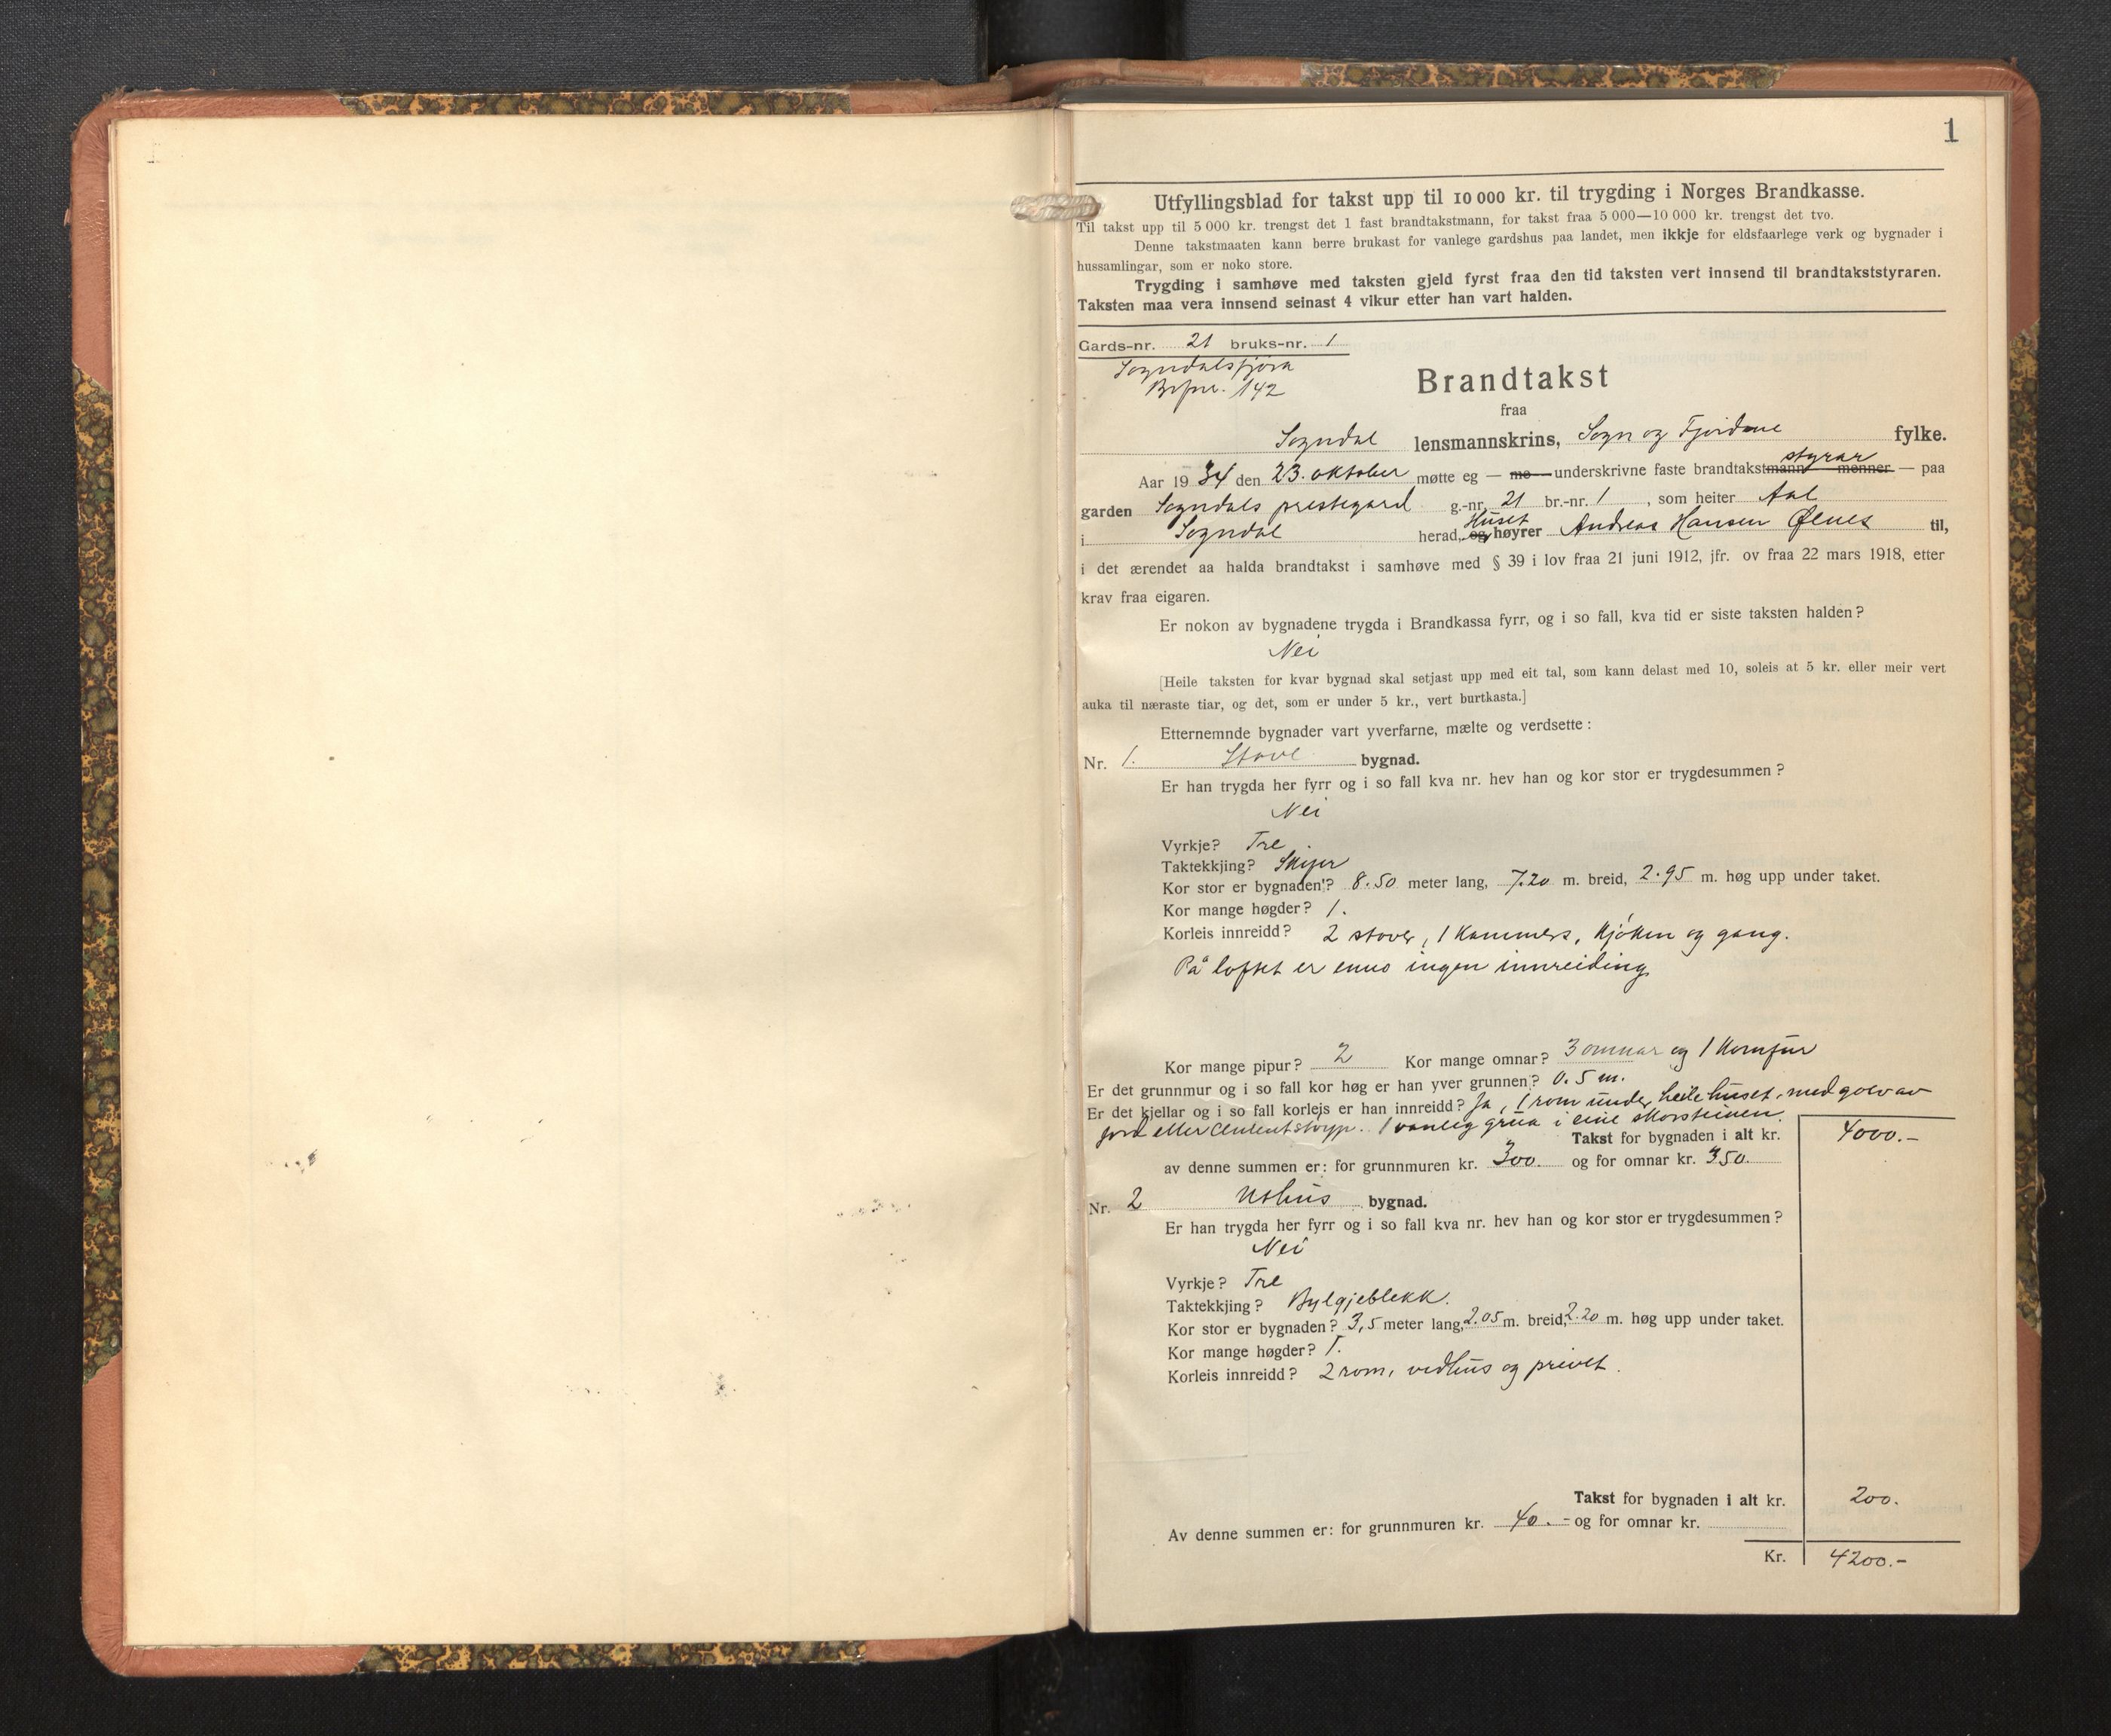 1
Utfyllingsblad for takst upp til 10 000 kr. til trygding i Norges Brandkasse.
Til takst upp til 5 000 kr. trengst det 1 fast brandtakstmann, for takst fraa 5 000—10 000 kr. trengst det tvo.
Denne takstmaaten kann berre brukast for vanlege gardshus paa landet, men ikkje for eldsfaarlege verk og bygnader i
hussamlingar, som er noko store.
Trygding i samhøve med taksten gjeld fyrst fraa den tid taksten vert innsend til brandtakststyraren.
Taksten maa vera innsend seinast 4 vikur etter han vart halden.
Gards-nr. 21 bruks-nr. 1
Sogndalsfjøra
142
Brandtakst
fraa
Sogndal lensmannskrins, Sogn og Fjordane fylke.
styrar
Aar 1934 den 23. oktober møtte eg — me — underskrivne faste brandtakstmann menner — paa
garden Sogndals prestegard g.-nr. 21 br.-nr. 1, som heiter Aal
Huset
i Sogndal herad, og høyrer Andreas Hansen Ølnes til,
i det ærendet aa halda brandtakst i samhøve med § 39 i lov fraa 21 juni 1912, jfr. ov fraa 22 mars 1918, etter
krav fraa eigaren.
Er nokon av bygnadene trygda i Brandkassa fyrr, og i so fall, kva tid er siste taksten halden?
Nei
[Heile taksten for kvar bygnad skal setjast upp med eit tal, som kann delast med 10, soleis at 5 kr. eller meir vert
auka til næraste tiar, og det, som er under 5 kr., vert burtkasta.]
Etternemnde bygnader vart yverfarne, mælte og verdsette:
Nr. 1. Stove bygnad.
Er han trygda her fyrr og i so fall kva nr. hev han og kor stor er trygdesummen?
Nei
Vyrkje? Tre
Taktekkjing? Skifer
Kor stor er bygnaden? 8.50 meter lang, 7.20 m. breid, 2.95 m. høg upp under taket.
Kor mange høgder? 1.
Korleis innreidd? 2 stover, 1 kammers, kjøken og gang.
På loftet er enno ingen innreiding
Kor mange pipur? 2 Kor mange omnar? 3 omnar og 1 komfur
Er det grunnmur og i so fall kor høg er han yver grunnen? 0.5 m.
Er det kjellar og i so fall korleis er han innreidd? Ja, 1 rom under heile huset, med golv av
jord eller cementstøyp. 1 vanleg grua i eine skorsteinen.
Takst for bygnaden i alt kr. 4000.-
av denne summen er: for grunnmuren kr. 300. og for omnar kr. 350.
Nr. 2 Uthus bygnad.
Er han trygda her fyrr og i so fall kva nr. hev han og kor stor er trygdesummen?
Nei
Vyrkje? Tre
Taktekkjing? Bylgjeblekk.
Kor stor er bygnaden? 3,5 meter lang, 2.05 m. breid, 2.20 m. høg upp under taket.
Kor mange høgder? 1.
Korleis innreidd? 2 rom, vedhus og privet.
Takst for bygnaden i alt kr. 200.
Av denne summen er: for grunnmuren kr. 40.- og for omnar kr.
Kr. 4200.-